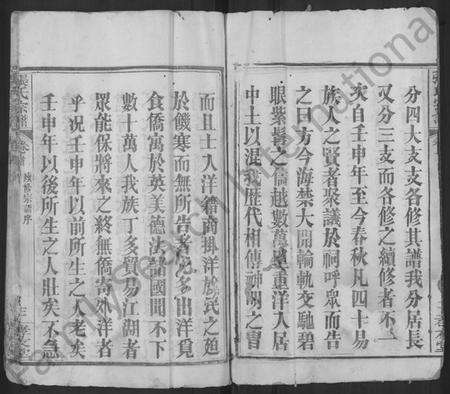 分四大支支各修其譜我分居長
又分三支而各修之續修者不一
次自壬申年至今春秋凡四十易
族人之賢者聚議於祠呼眾而告
之曰方今海禁大開輪軌交馳碧
眼紫髯之倫越數萬里重洋入居
中土以混我歷代相傳神明之胄
張氏宗譜
卷首
續修宗譜序
而且士入洋籍商掛洋旗民之迫
於饑寒而無所告者尤多出洋覓
食僑寓於英美德法諸國間不下
數十萬人我族丁多貿易江湖者
眾能保將來之終無僑寄外洋者
乎況壬申年以前所生之人老矣
壬申年以後所生之人壯矣不急
FamilySearch International